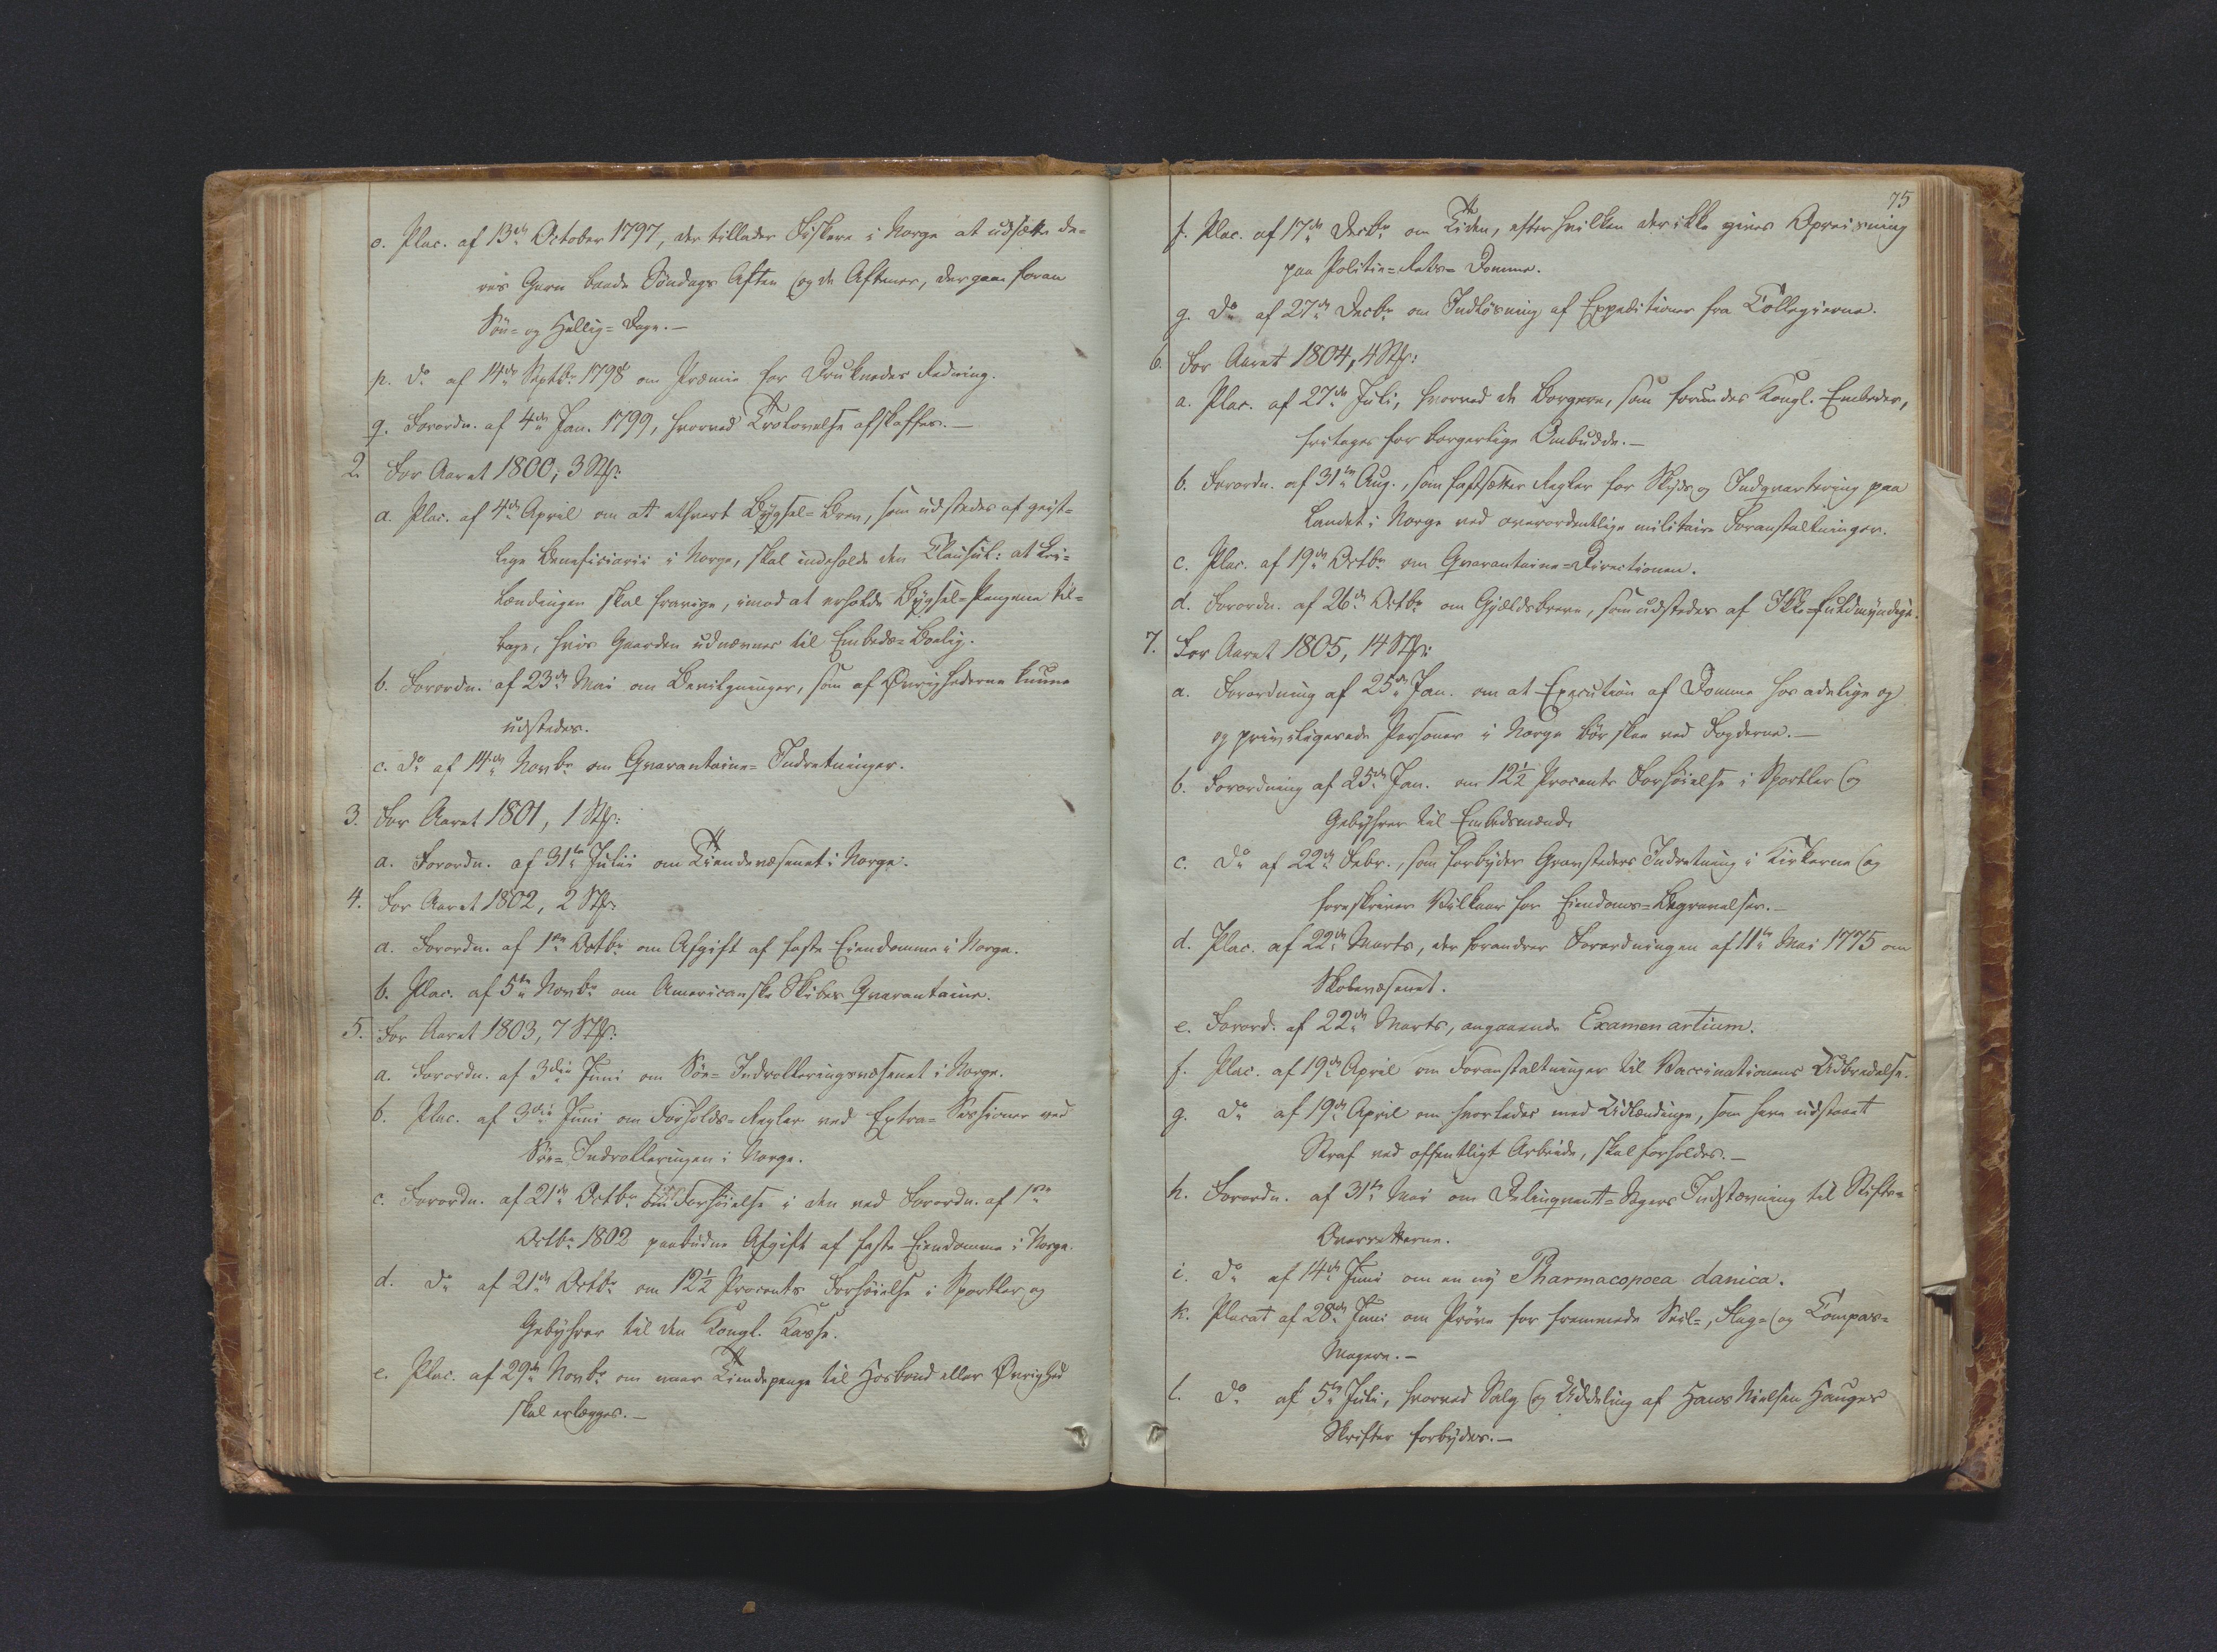 o. Plac. af 13de October 1797, der tillader Fiskere i Norge at udsætte de=
res Garn baade Søndags Aften og de Aftener, der gaae foran
Søn= og Hellig= Dage.—
p. Do af 14de Septbr 1798 om Præmie for Druknedes Redning.
q. Forordn. af 4de Jan. 1799, hvorved Trolovelse afskaffes.—
2. For Aaret 1800, 3 Stk:
a. Plac. af 4de April om at ethvert Bygsel=Brev, som udstedes af geist=
lige Beneficiarii i Norge, skal indeholde den Clausul: at Lei=
lændingen skal fravige, imod at erholde Bygsel=Pengene til=
bage, hvis Gaarden udnævnes til Embeds=Boelig.
b. Forordn. af 23de Mai om Bevilgninger, som af Øvrighederne kunne
udstedes.
c. Do af 14de Novbr om Qvarantaine= Indretninger.
3. For Aaret 1801, 1 Stk:
a. Forordn. af 31te Julii om Tiendevæsenet i Norge.
4. For Aaret 1802, 2 Stk:
a. Forordn. af 1ste Octbr om Afgift af faste Eiendomme i Norge.
b. Plac. af 5te Novbr om Americanske Skibes Qvarantaine.
5. For Aaret 1803, 7 Stk:
a. Forordn. af 3die Juni om Søe= Indrolleringsvæsenet i Norge.
b. Plac. af 3die Juni om Forholds=Regler ved Extra= Sessioner ved
Søe= Indrolleringen i Norge.
c. Forordn. af 21de Octbr om Forhøielse i den ved Forordn. af 1ste
Octbr 1802 paabudne Afgift af faste Eiendomme i Norge.
d. Do af 21de Octbr om 12½ Procents Forhøielse i Sportler og
Gebyhrer til den Kongl. Kasse.
e. Plac. af 29de Novbr om naar Tiendepenge til Hosbond eller Øvrighed
skal erlægges.—
75
f. Plac. af 17de Decbr om Tiden, efter hvilken der ikke gives Opreisning
paa Politie=Rets= Domme.
g. Do af 27de Decbr om Indløsning af Expeditioner fra Collegierne.
6. For Aaret 1804, 4 Stk:
a. Plac. af 27de Juli, hvorved de Borgere, som forundes Kongl. Embeder,
fritages for borgerlige Ombudde.—
b. Forordn. af 31te Aug., som fastsætter Regler for Skyds og Indqvartering paa
Landet i Norge ved overordentlige militaire Foranstaltninger.
c. Plac. af 19de Octbr om Qvarantaine=Directionen.
d. Forordn. af 26de Octbr om Gjældsbreve, som udstedes af Ikke=fuldmyndige.
7. For Aaret 1805, 14 Stk:
a. Forordning af 25de Jan. om at Execution af Domme hos adelige og
og priviligerede Personer i Norge bør skee ved Fogderne.—
b. Forordning af 25de Jan. om 12½ Procents Forhøielse i Sportler og
Gebyhrer til Embedsmænd.
c. Do af 22de Febr., som forbyder Gravsteders Indretning i Kirkerne og
foreskriver Vilkaar for Eiendoms=Begravelser.—
d. Plac. af 22de Marts, der forandrer Forordningen af 11te Mai 1775 om
Skolevæsenet.
e. Forord. af 22de Marts, angaaende Examen artium.
f. Plac. af 19de April om Foranstaltninger til Vaccinationens Udbredelse.
g. Do af 19de April om hvorledes med Udlændinge, som have udstaaet
Straf ved offentligt Arbeide, skal forholdes.—
h. Forordn. af 31te Mai om Delinqvent=Sagers Indstævning til Stifts=
Overretterne.
i. Do af 14de Juni om en ny Pharmacopoea danica.
k. Placat af 28de Juni om Prøve for fremmede Seil=, Flag= og Compas=
Magere.—
l. Do af 5te Juli, hvorved Salg og Uddeling af Hans Nielsen Hauges
Skrifter forbydes.—